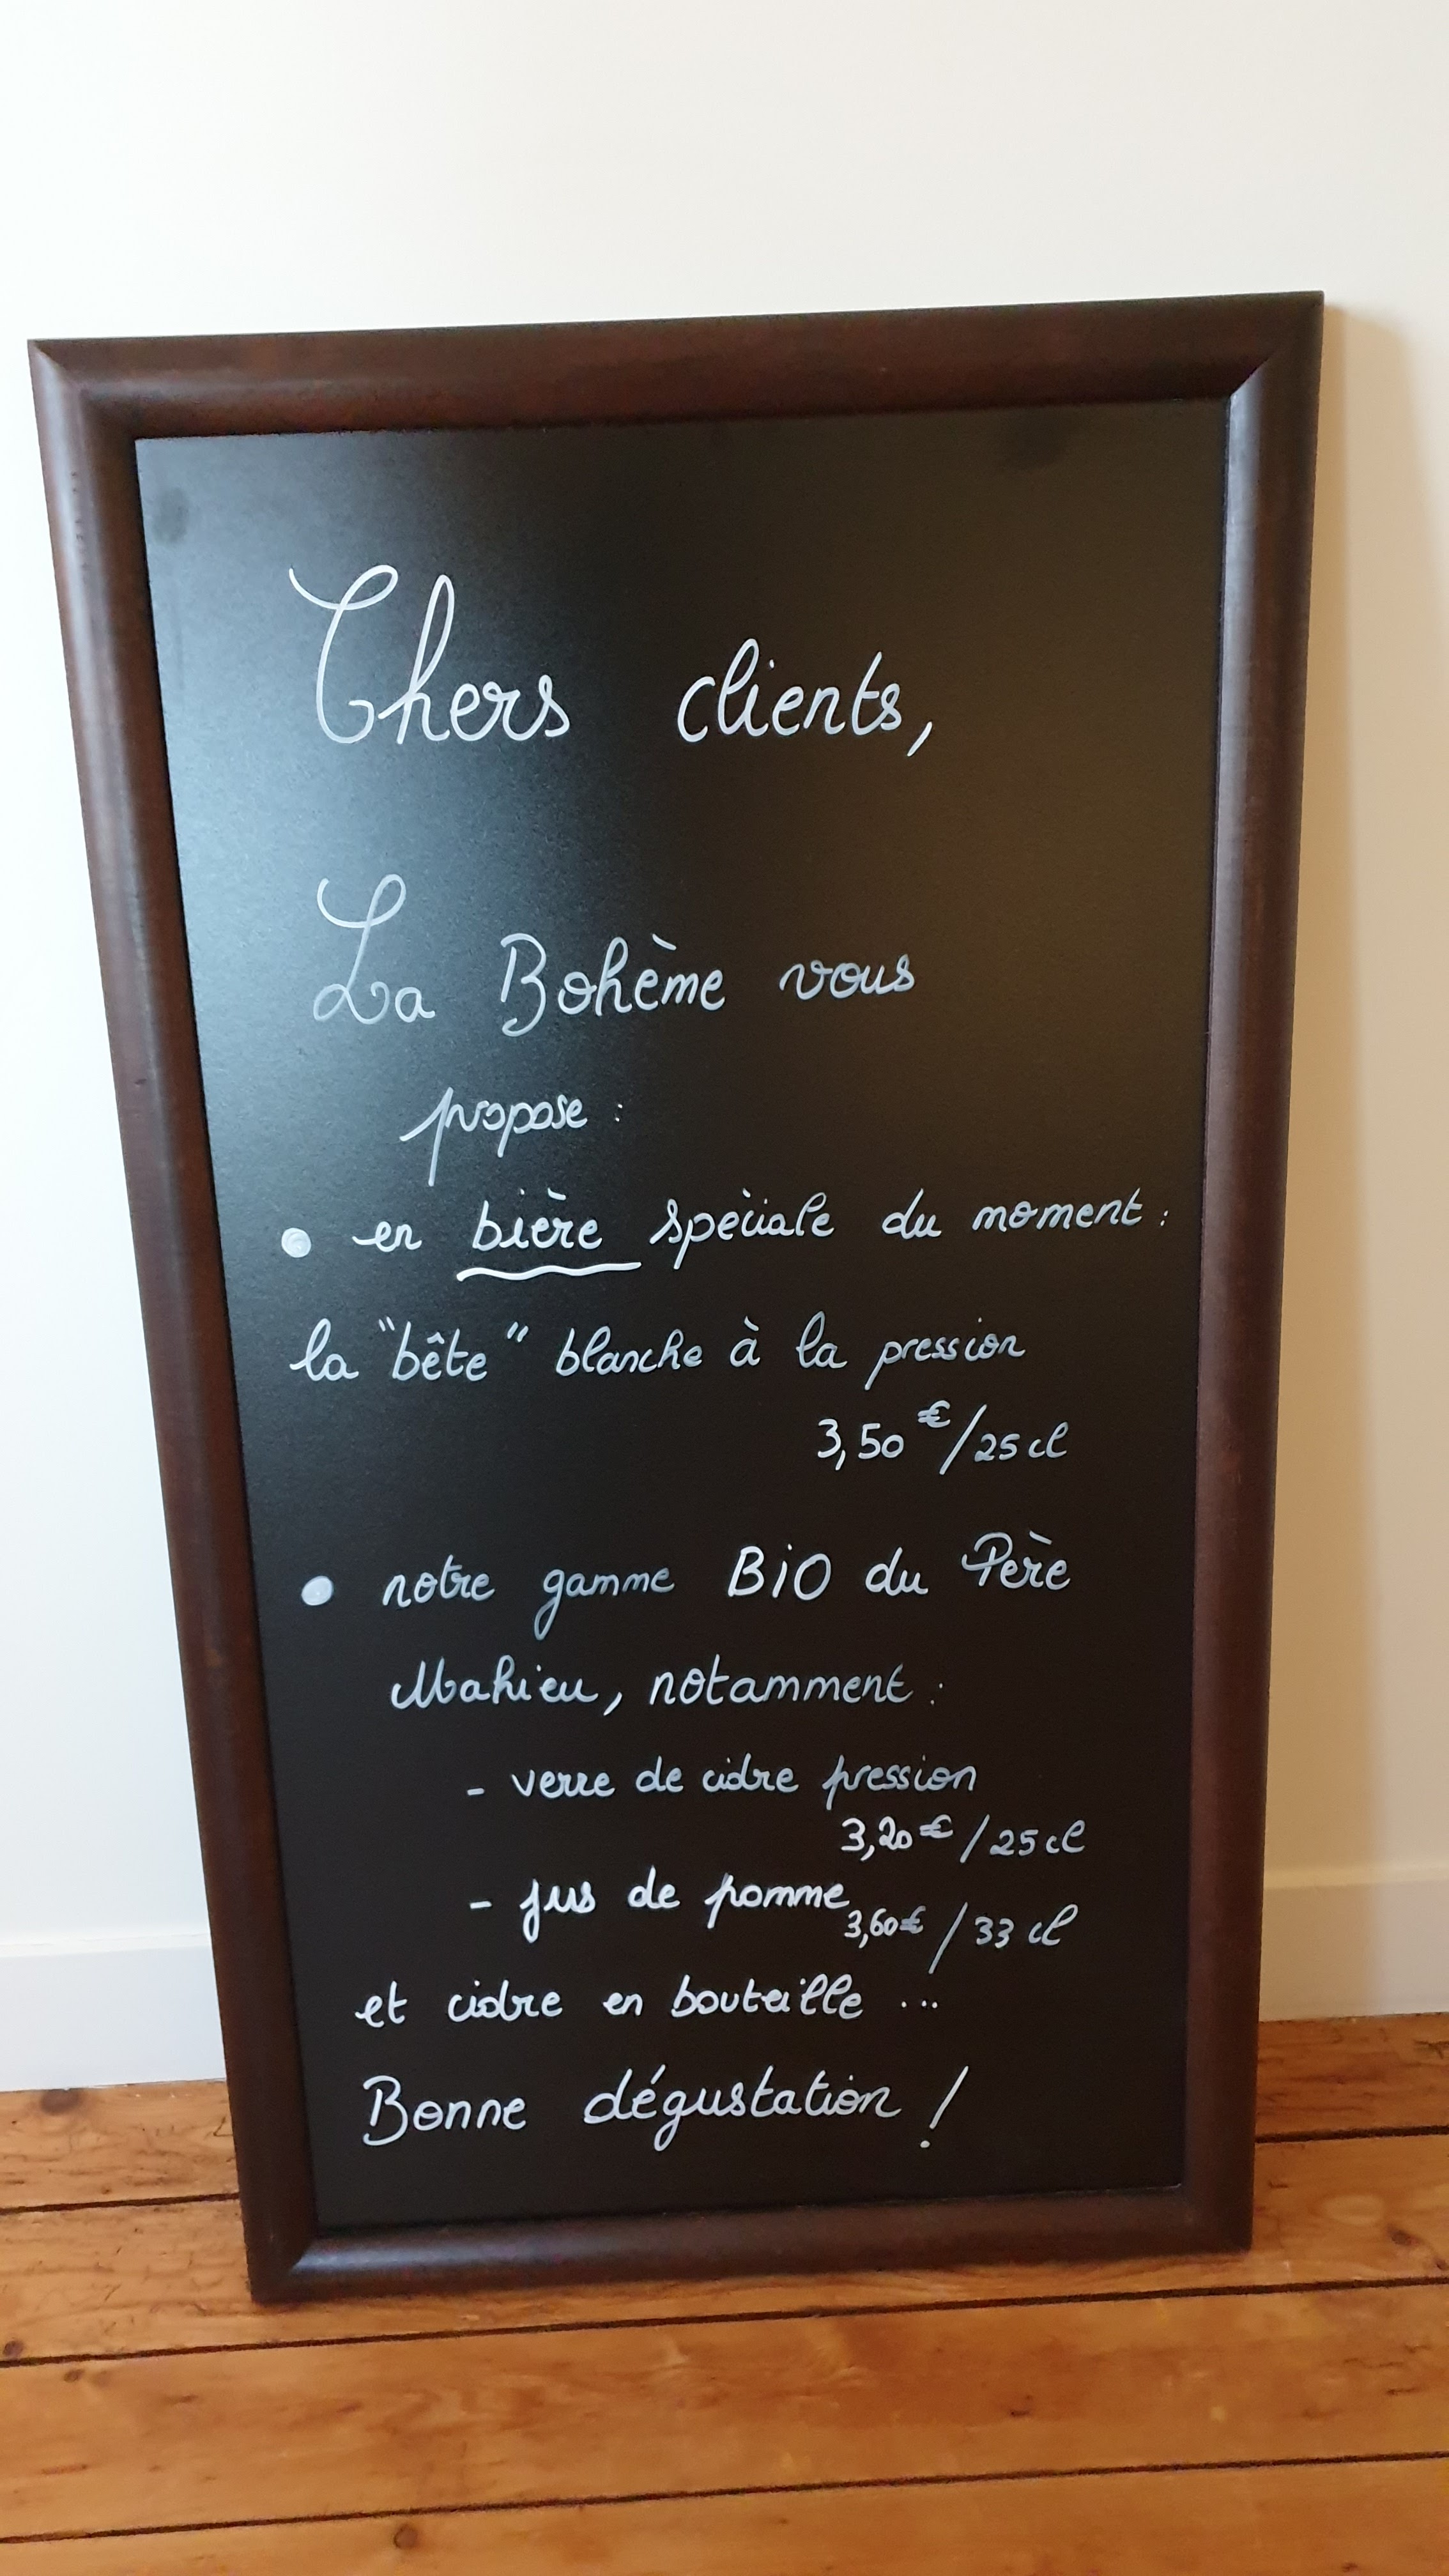 Chers clients,
La Bohème vous
propose :
• en bière spèciale du moment :
la "bête" blanche à la pression
3,50 €/25 cl
• notre gamme BiO du Père
Mahieu, notamment :
- verre de cidre pression
3,20 € / 25 cl
- jus de pomme
3,60 € / 33 cl
et cidre en bouteille ...
Bonne dégustation !